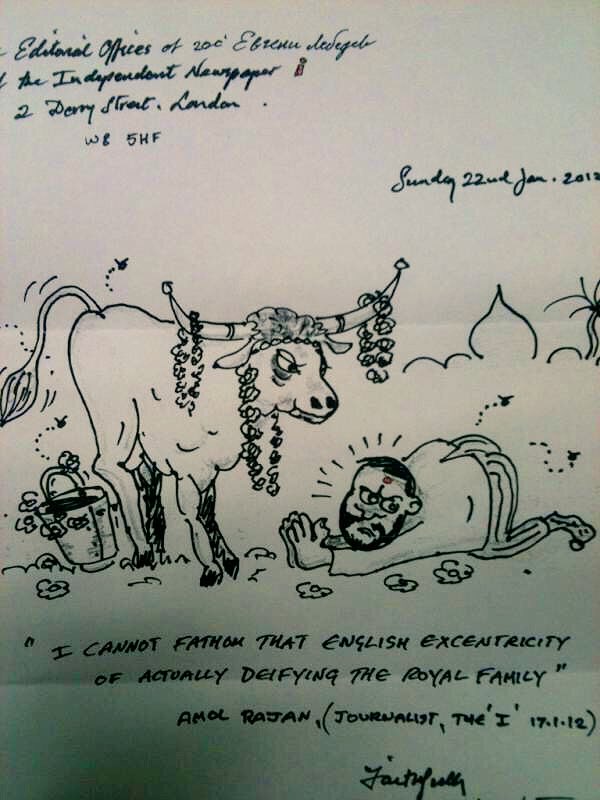 Editorial Offices of
the Independent Newspaper i
2 Derry Street. London.
W8 5HF
Sunday 22nd Jan. 2012
"I CANNOT FATHOM THAT ENGLISH EXCENTRICITY
OF ACTUALLY DEIFYING THE ROYAL FAMILY"
AMOL RAJAN, (JOURNALIST, THE 'I' 17.1.12)
Faithfully